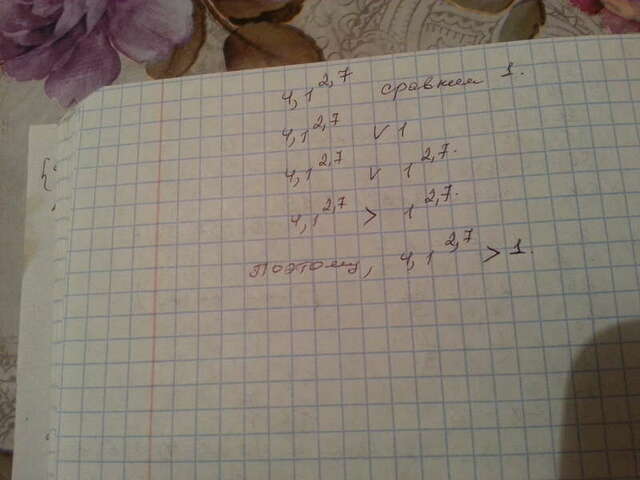 4,1^2,7 сравним 1.
4,1^2,7 ∨ 1
4,1^2,7 ∨ 1^2,7.
4,1^2,7 > 1^2,7.
Поэтому, 4,1^2,7 > 1.